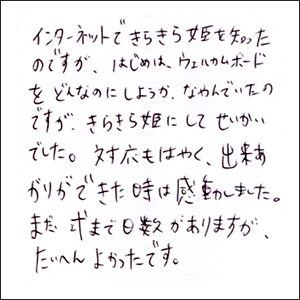 インターネットできらきら姫を知った
のですが、はじめは、ウェルカムボード
をどんなのにしようか、なやんでいたの
ですが、きらきら姫にしてせいかい
でした。対応もはやく、出来あ
がりができた時は感動しました。
まだ式まで日数がありますが、
たいへんよかったです。